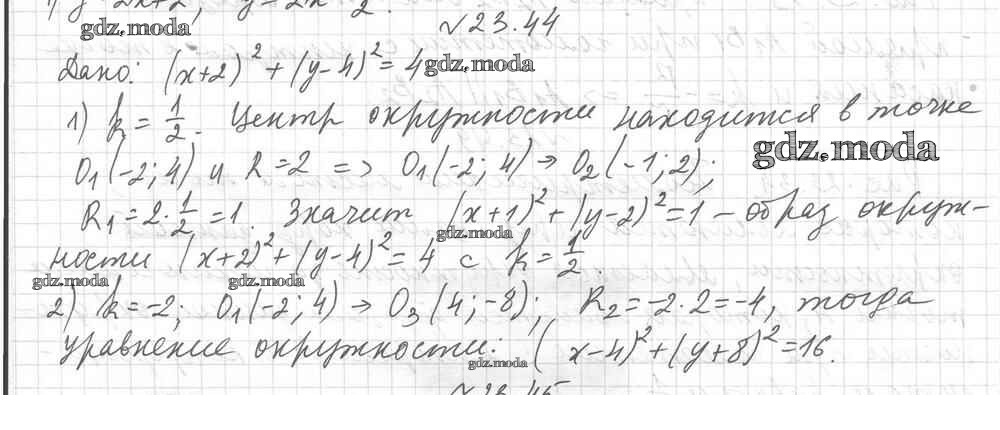 1) y = 2x+2, y = 2x 2.
gdz.moda
№23.44
Дано: (x+2)² + (y-4)² = 4 gdz.moda
1) k = 1/2. Центр окружности находится в точке
gdz.moda
O₁(-2; 4) и R = 2 => O₁(-2; 4) → O₂(-1; 2);
R₁ = 2·1/2 = 1. Значит (x+1)² + (y-2)² = 1 - образ окруж-
gdz.moda
ности (x+2)² + (y-4)² = 4 с k = 1/2.
gdz.moda gdz.moda
2) k = -2; O₁(-2; 4) → O₃(4; -8); R₂ = -2·2 = -4, тогда
уравнение окружности: (x-4)² + (y+8)² = 16.
gdz.moda